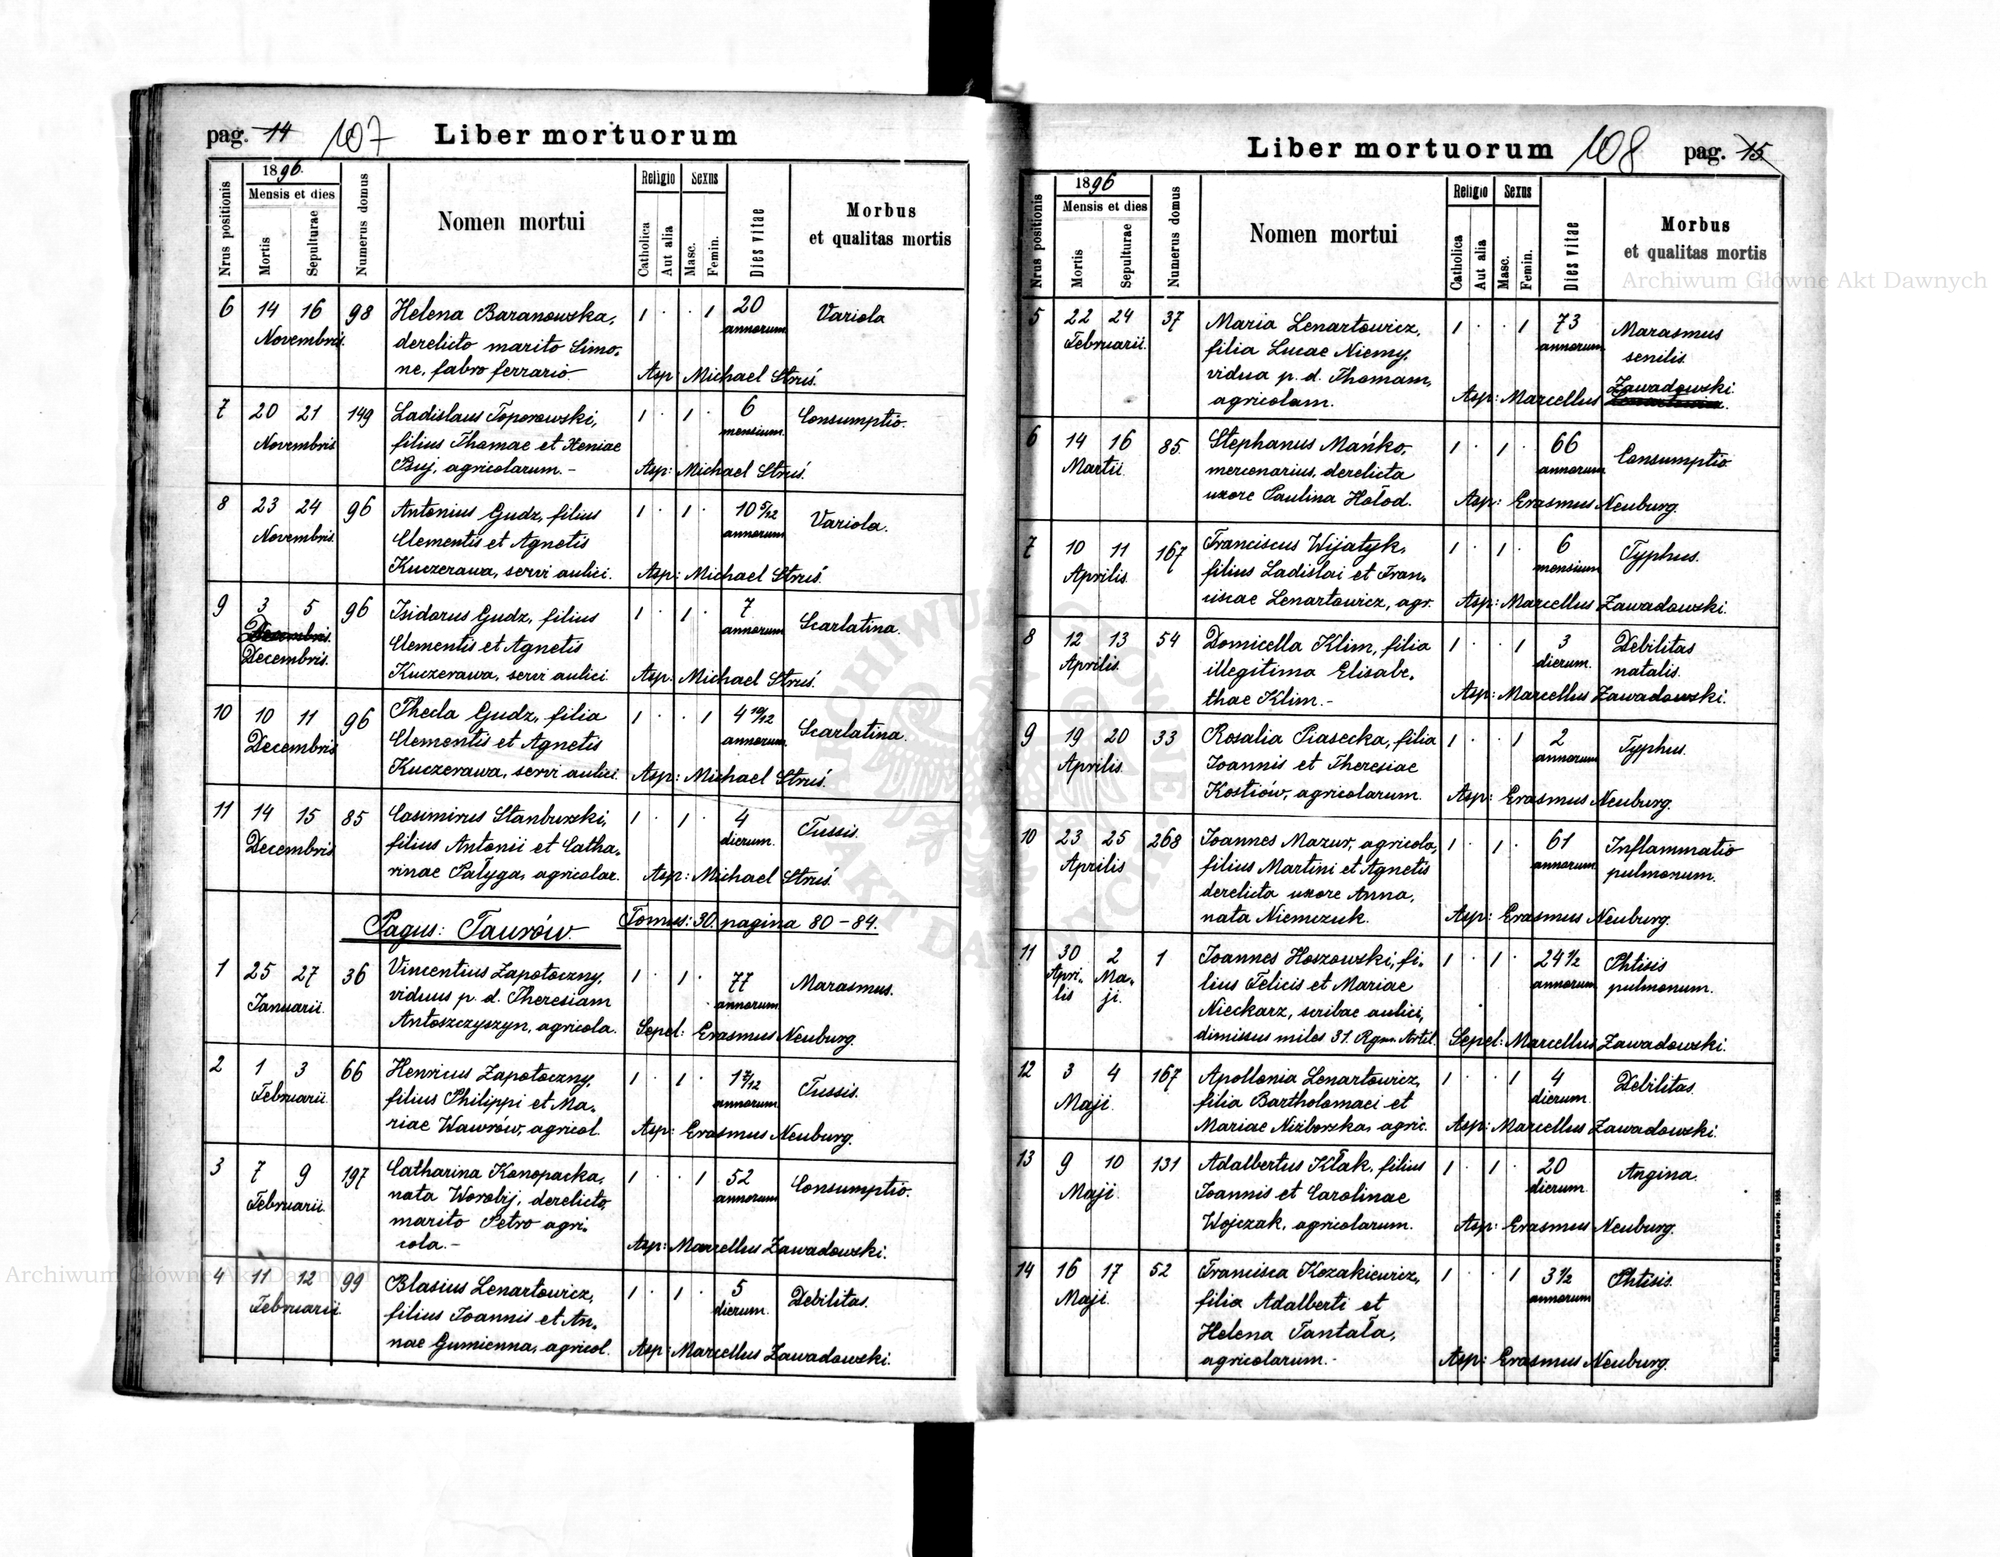 pag. 14 107 Liber mortuorum
Nrus positionis
1896.
Mensis et dies
Mortis
Sepulturae
Numerus domus
Nomen mortui
Religio
Catholica
Aut alia
Sexus
Masc.
Femin.
Dies vitae
Morbus
et qualitas mortis
6 14 16 98 Helena Baranowska, 1 · · 1 20 Variola
Novembris. derelicto marito Simo- annorum
ne, fabro ferrario. Asp: Michael Struś.
7 20 21 149 Ladislaus Toporowski, 1 · 1 · 6 Consumptio.
Novembris filius Thomae et Xeniae mensium.
Buj, agricolarum. - Asp: Michael Struś.
8 23 24 96 Antonius Gudz, filius 1 · 1 · 10 5/12 Variola.
Novembris. Clementis et Agnetis annorum
Kuczerawa, servi aulici. Asp: Michael Struś.
9 3 5 96 Isidorus Gudz, filius 1 · 1 · 7 Scarlatina.
Decembris. Clementis et Agnetis annorum
Decembris. Kuczerawa, servi aulici Asp: Michael Struś.
10 10 11 96 Thecla Gudz, filia 1 · · 1 4 10/12 Scarlatina.
Decembris Clementis et Agnetis annorum.
Kuczerawa, servi aulici. Asp: Michael Struś.
11 14 15 85 Casimirus Stanburski, 1 · 1 · 4 Tussis.
Decembris filius Antonii et Catha- dierum.
rinae Pałyga, agricolar. Asp: Michael Struś.
Pagus: Taurów. Tomus: 30. pagina 80-84.
1 25 27 36 Vincentius Zapotoczny, 1 · 1 · 77 Marasmus.
Januarii. viduus p. d. Theresiam annorum.
Antoszczyszyn, agricola. Sepel: Erasmus Neuburg.
2 1 3 66 Henricus Zapotoczny, 1 · 1 · Tussis.
Februarii. filius Philippi et Ma- annorum
riae Wawrów, agricol. Asp: Erasmus Neuburg.
3 7 9 197 Catharina Konopacka, 1 · · 1 52 Consumptio.
Februarii. nata Worobij, derelicto annorum
marito Petro agri-
cola. - Asp: Marcellus Zawadowski.
4 11 12 99 Blasius Lenartowicz, 1 · 1 · 5 Debilitas.
Februarii filius Joannis et An- dierum.
nae Gumienna, agricol. Asp: Marcellus Zawadowski.
Liber mortuorum 108 pag. 15
Nrus positionis
1896
Mensis et dies
Mortis
Sepulturae
Numerus domus
Nomen mortui
Religio
Catholica
Aut alia
Sexus
Masc.
Femin.
Dies vitae
Morbus
et qualitas mortis
5 22 24 37 Maria Lenartowicz, 1 · · 1 73 Marasmus
Februarii. filia Lucae Niemy, annorum senilis.
vidua p. d. Thomam, Zawadowski.
agricolam. Asp: Marcellus
6 14 16 85. Stephanus Mańko, 1 · 1 · 66 Consumptio
Martii mercenarius, derelicta annorum
uxore Paulina Hołod. Asp: Erasmus Neuburg.
7 10 11 167 Franciscus Wijatyk, 1 · 1 · 6 Typhus.
Aprilis. filius Ladislai et Fran- mensium
ciscae Lenartowicz, agr. Asp: Marcellus Zawadowski.
8 12 13 54 Domicella Klim, filia 1 · · 1 3 Debilitas
Aprilis. illegitima Elisabe- dierum. natalis.
thae Klim. - Asp: Marcellus Zawadowski.
9 19 20 33 Rosalia Piasecka, filia 1 · · 1 2 Typhus.
Aprilis. Joannis et Theresiae annorum
Kostiów, agricolarum. Asp: Erasmus Neuburg.
10 23 25 268 Joannes Mazur, agricola, 1 · 1 · 61 Inflammatio
Aprilis filius Martini et Agnetis annorum pulmonum.
derelicta uxore Anna,
nata Niemczuk. Asp: Erasmus Neuburg.
11 30 2 1 Joannes Hoszowski, fi- 1 · 1 · 24 1/2 Phtisis
Apri- Ma- lius Felicis et Mariae annorum pulmonum.
lis ji. Nieckarz, scribae aulici,
dimissus miles 31. Rgm. Artil. Sepel: Marcellus Zawadowski.
12 3 4 167 Apollonia Lenartowicz, 1 · · 1 4 Debilitas.
Maji. filia Bartholomaei et dierum.
Mariae Niziborska, agric. Asp: Marcellus Zawadowski.
13 9 10 131 Adalbertus Kłak, filius 1 · 1 · 20 Angina.
Maji. Joannis et Carolinae dierum.
Wojczak, agricolarum. Asp: Erasmus Neuburg.
14 16 17 52 Francisca Kozakiewicz, 1 · · 1 3 1/2 Phtisis.
Maji. filia Adalberti et annorum
Helena Tantała,
agricolarum. - Asp: Erasmus Neuburg.
Nakładem Drukarni Ludowej we Lwowie.
Archiwum Główne Akt Dawnych
Archiwum Główne Akt Dawnych
ARCHIWUM GŁÓWNE AKT DAWNYCH